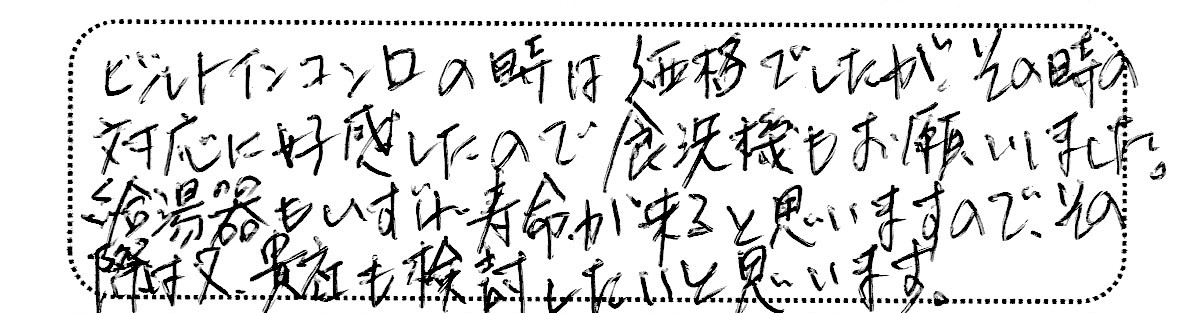 ビルトインコンロの時は価格でしたが、その時の
対応に好感したので食洗機もお願いしました。
給湯器もいずれ寿命が来ると思いますので、その
際は又、貴社も検討したいと思います。